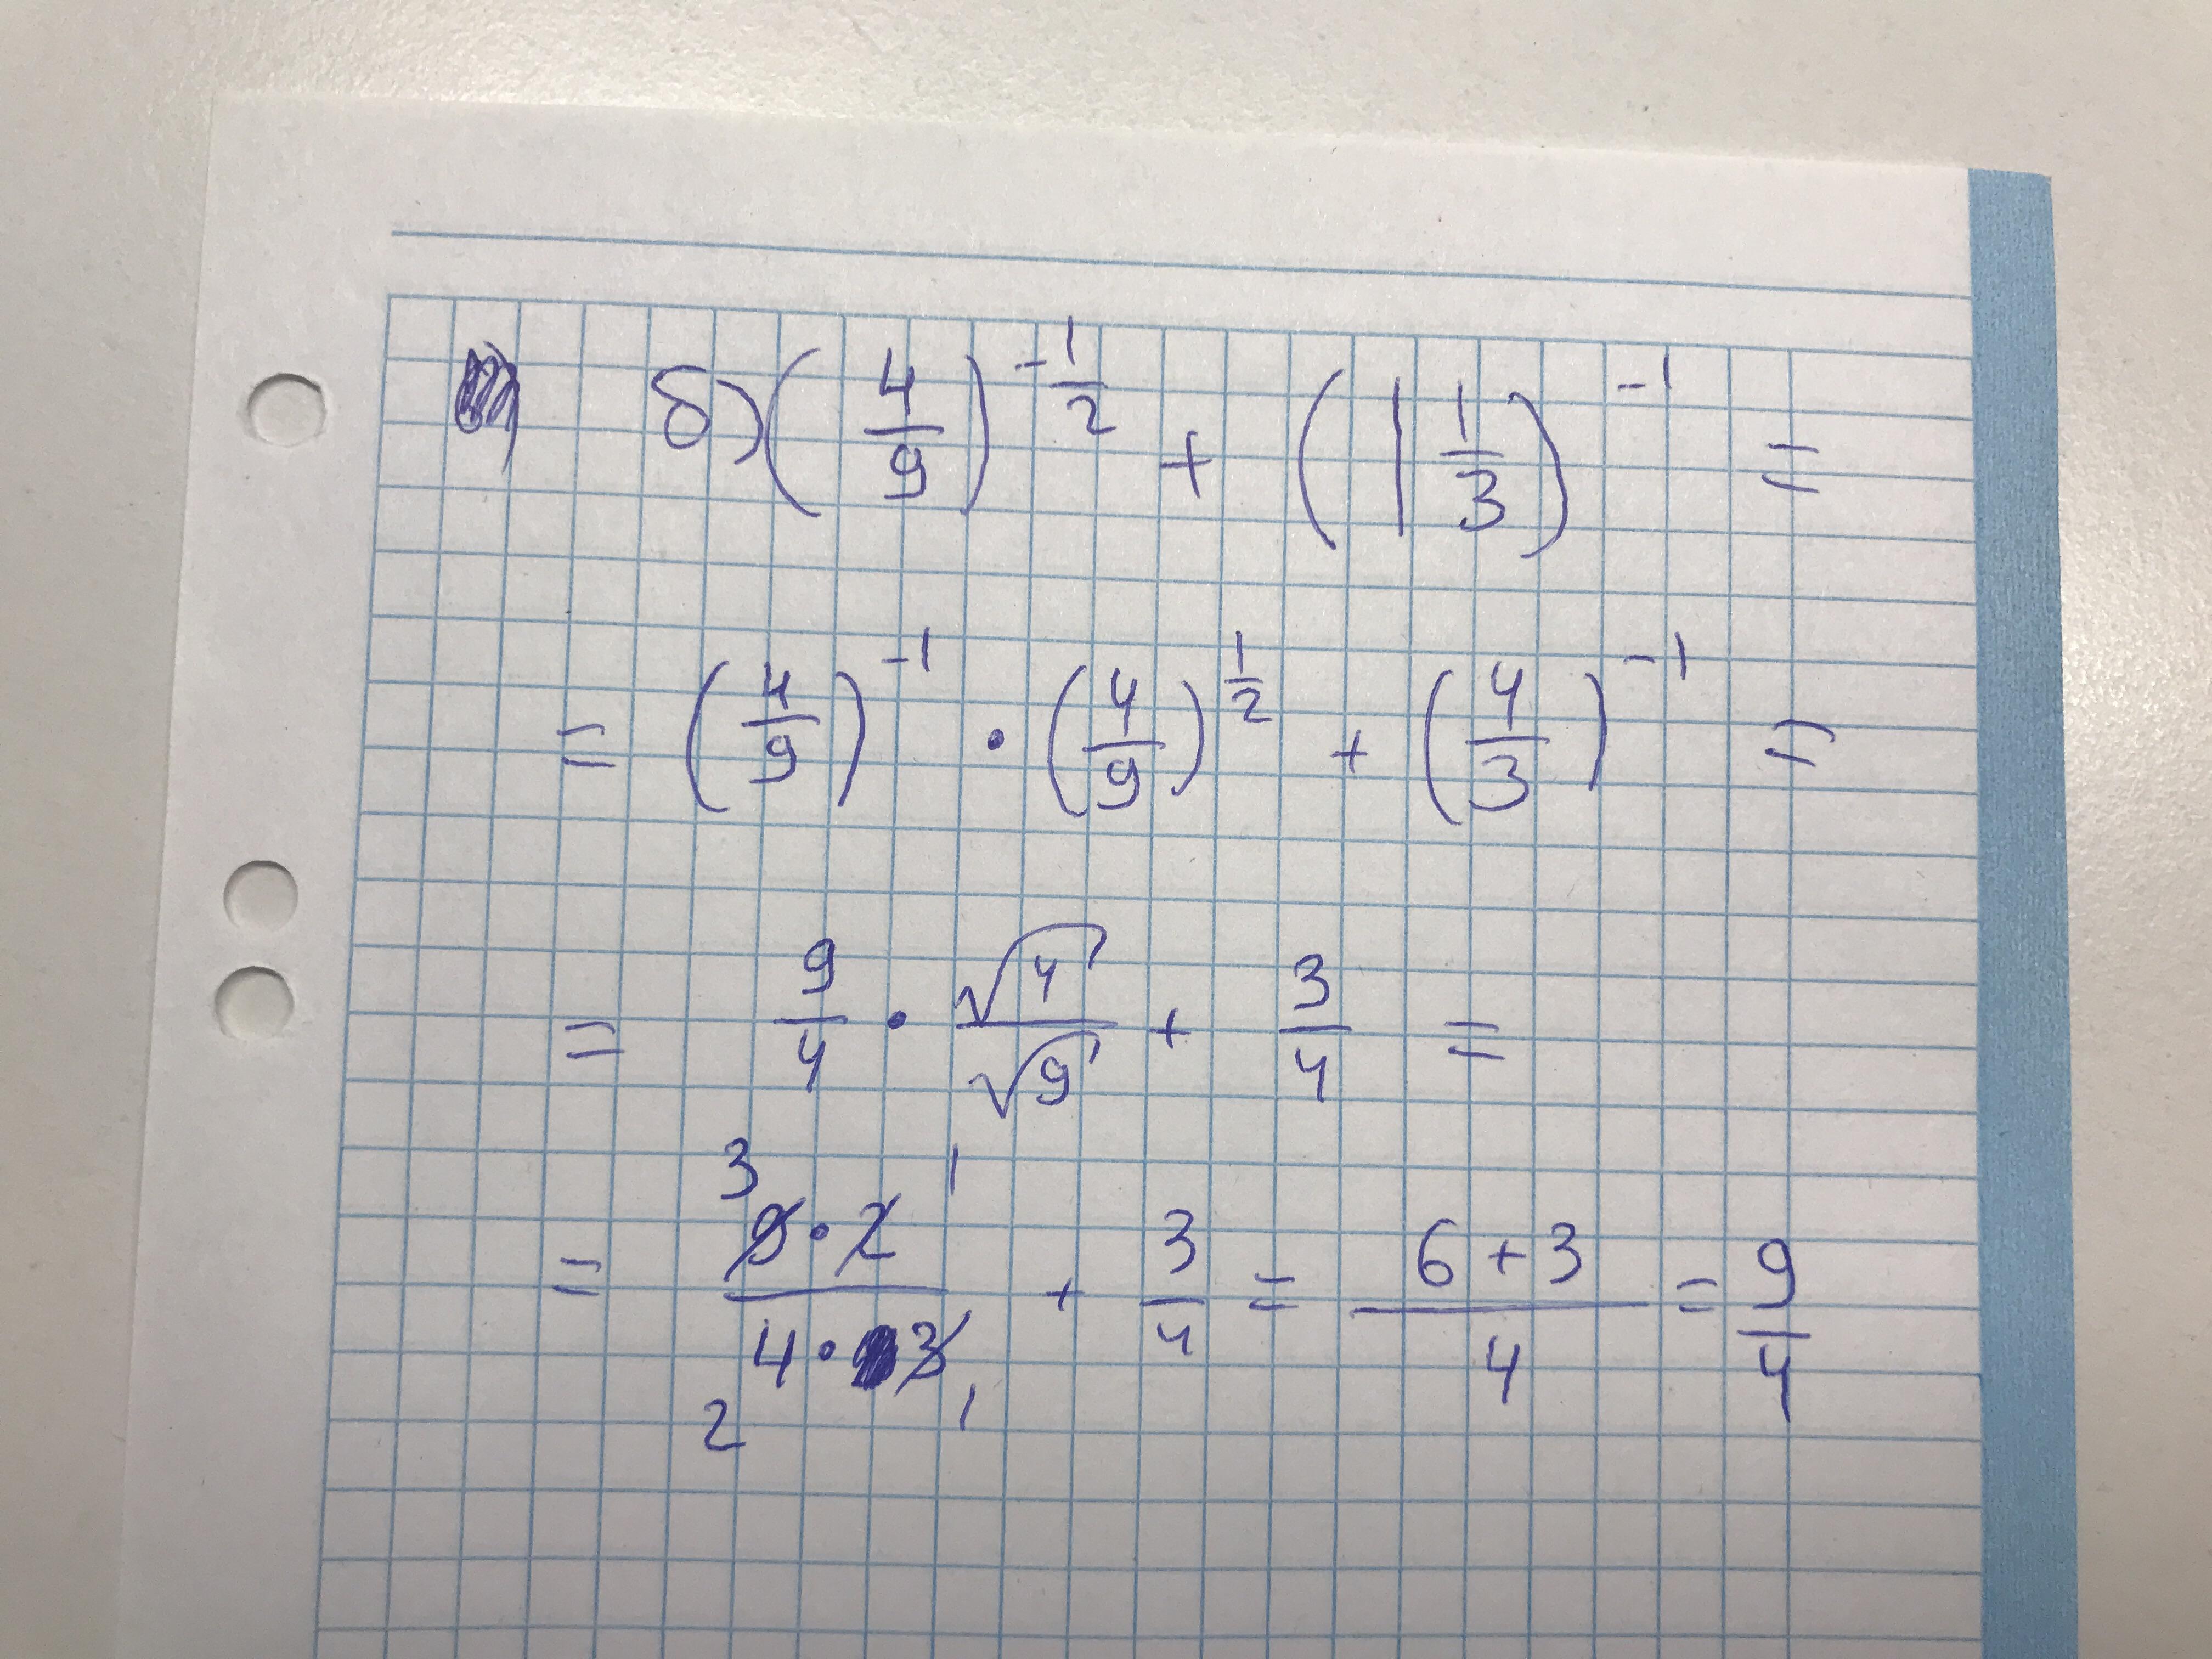 б) (4/9)^(-1/2) + (1 1/3)^(-1) =
= (4/9)^(-1) · (4/9)^(1/2) + (4/3)^(-1) =
= 9/4 · √4/√9 + 3/4 =
3 1
= (9·2)/(4·3) + 3/4 = (6+3)/4 = 9/4
2 1